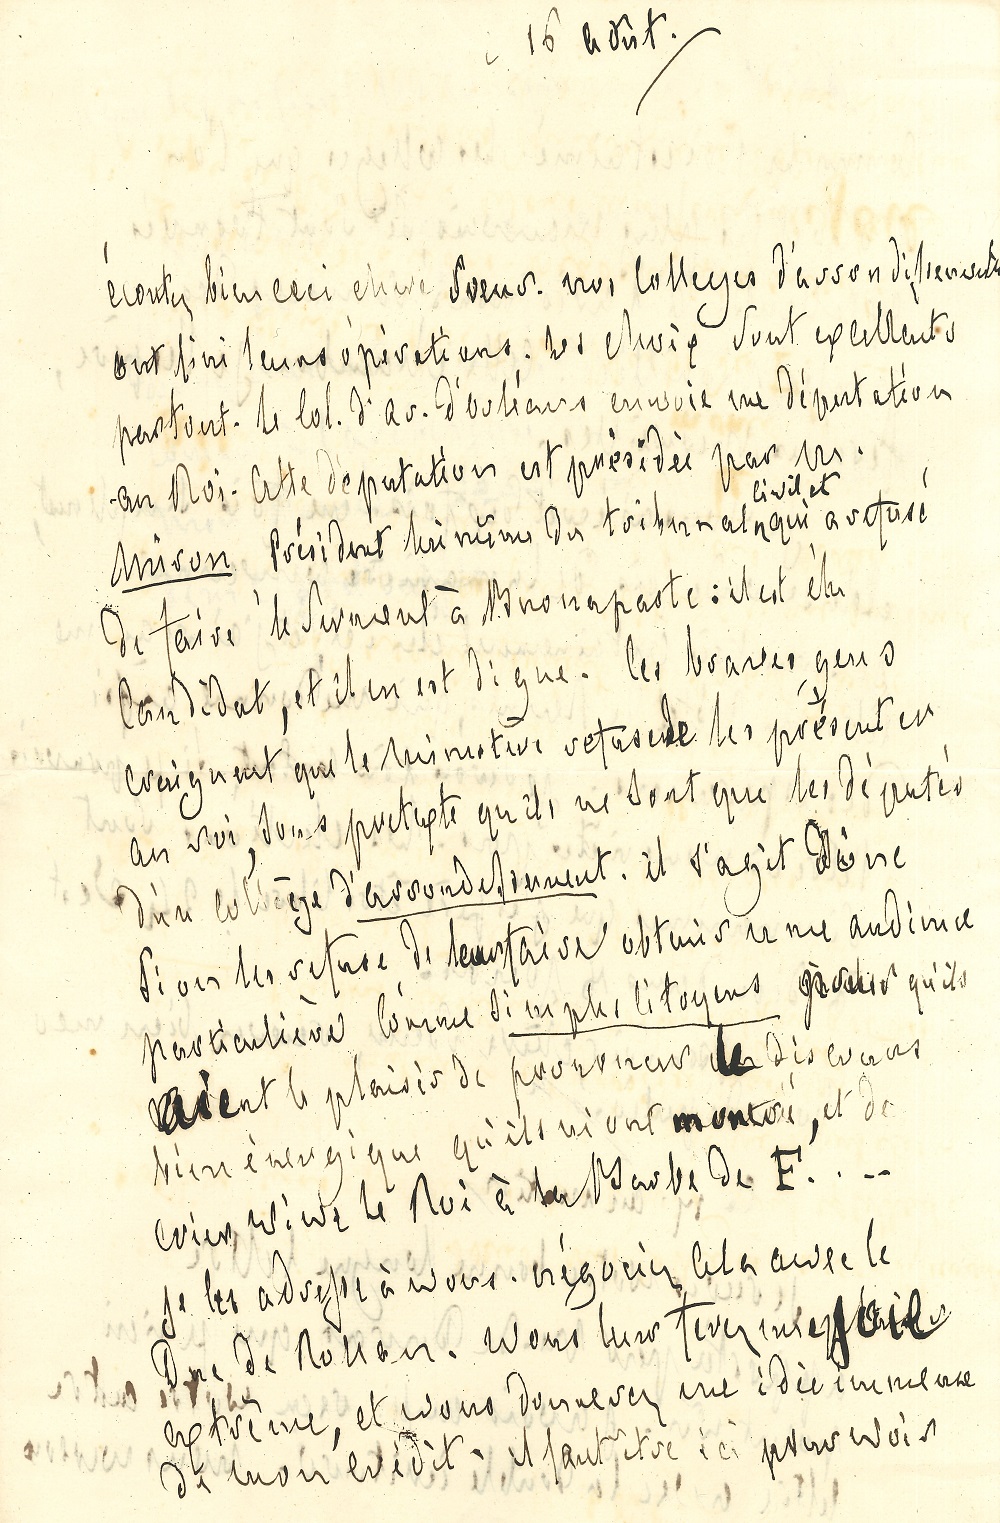 16 août.
écoutez bien ceci chère Soeur. nos Colleges d'arrondissements
ont fini leurs opérations. les choix sont excellents
partout. le Col. d'ar. d'orléans envoie une députation
au Roi. Cette députation est présidée par Mr.
Miron Président lui même du tribunal civil et qui a refusé
de faire le serment à Buonaparte : il est élu
Candidat, et il en est digne. les braves gens
craignent que le ministère refuse de les présenter
au roi, sous pretexte qu'ils ne sont que les députés
d'un collège d'arrondissement. il s'agit donc
si on les refuse de leur faire obtenir une audience
particulière comme simples citoyens pour qu'ils
aient le plaisir de prononcer le discours
bien énergique qu'ils m'ont montré, et de
crier vive le Roi à la Barbe de F. . . --
je les adresse à vous. négociez cela avec le
Duc de Rohan. vous leur ferez une joie
extrême, et vous donnerez une idée immense
de mon crédit. il faut être ici pour voir